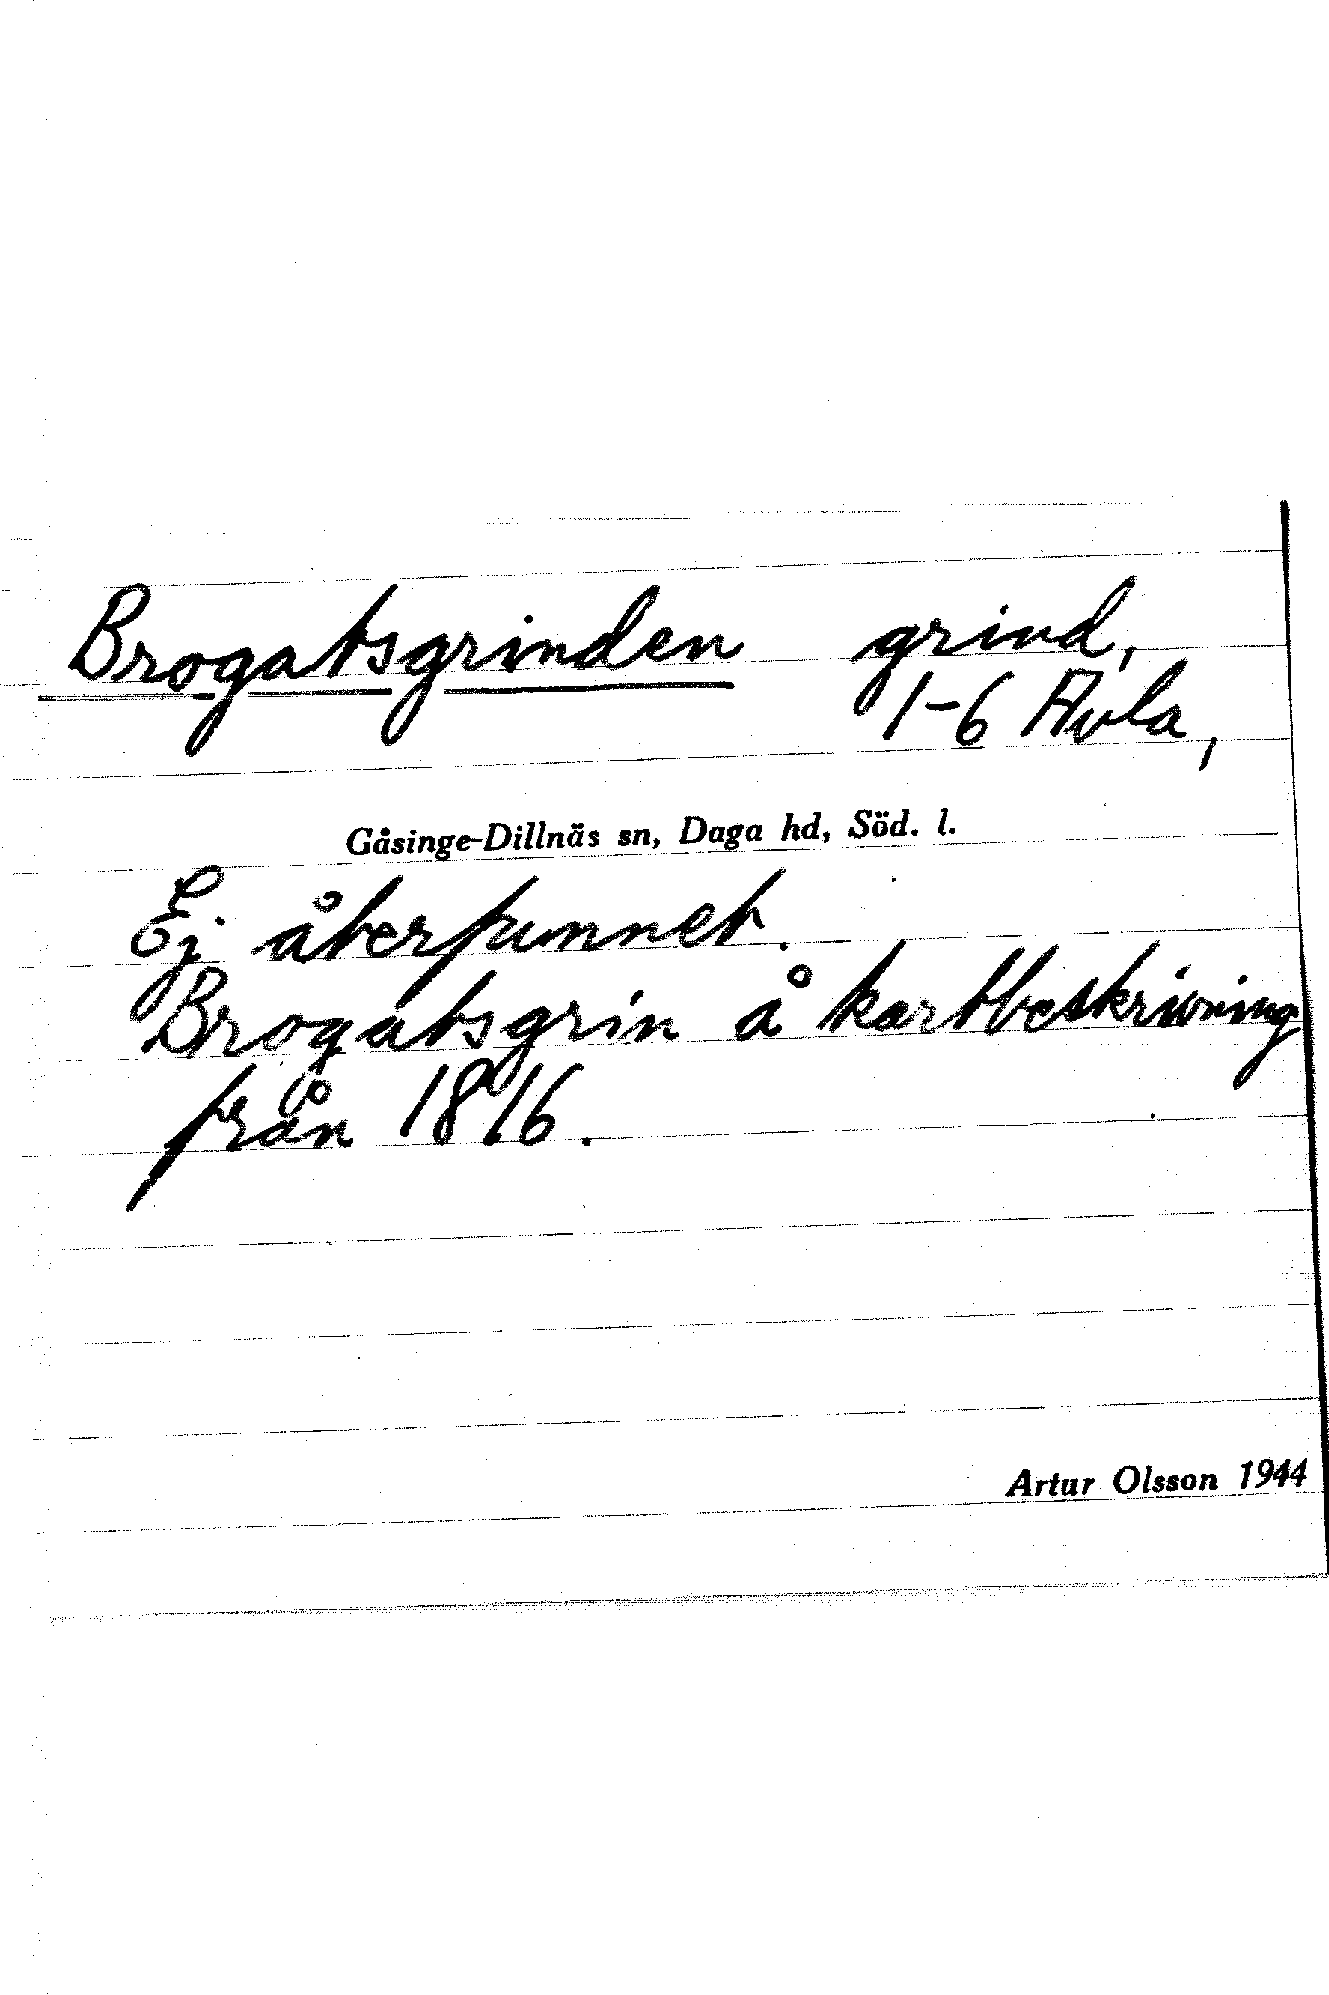 Brogatsgrinden grind,
1-6 Avla,
Gåsinge-Dillnäs sn, Daga hd, Söd. l.
Ej återfunnet.
Brogatsgrin å kartbeskrivning
från 1816.
Artur Olsson 1944